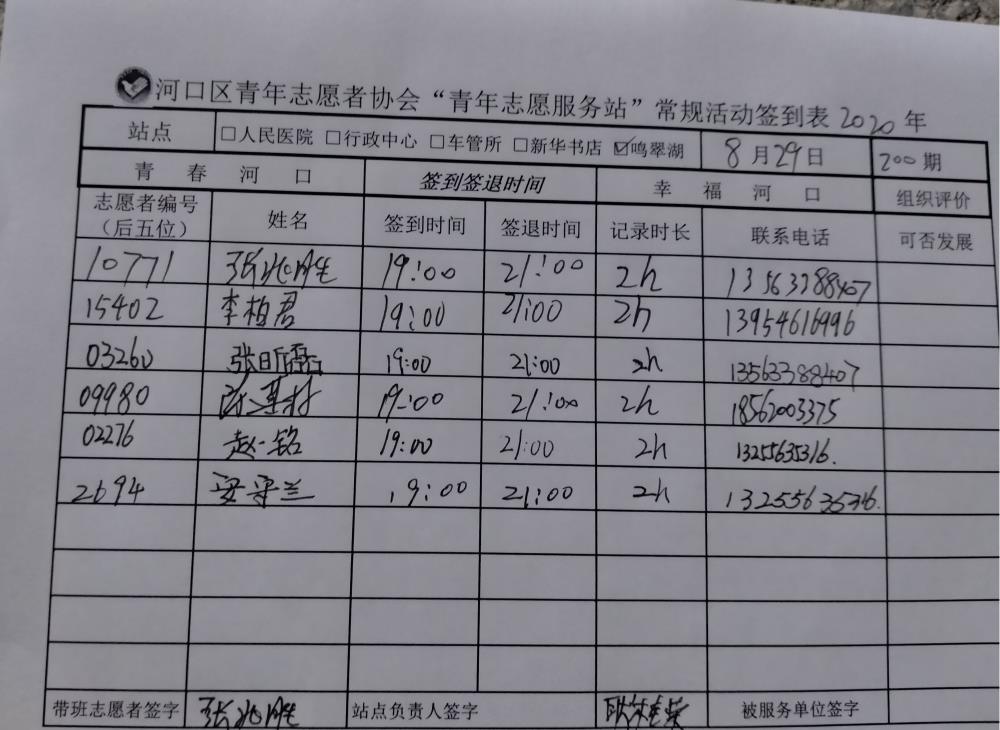 河口区青年志愿者协会“青年志愿服务站”常规活动签到表2020年
站点 □人民医院 □行政中心 □车管所 □新华书店 ☑鸣翠湖 8月29日 200期
青春河口 签到签退时间 幸福河口 组织评价
志愿者编号（后五位） 姓名 签到时间 签退时间 记录时长 联系电话 可否发展
10771 张兆胜 19:00 21:00 2h 13563388407
15402 李柏君 19:00 21:00 2h 13954616996
03260 19:00 21:00 2h 13563388407
09980 19:00 21:00 2h 18562003375
02276 赵一铭 19:00 21:00 2h 13255635316.
2694 安守兰 19:00 21:00 2h 13255635316.
带班志愿者签字 张兆胜 站点负责人签字 被服务单位签字